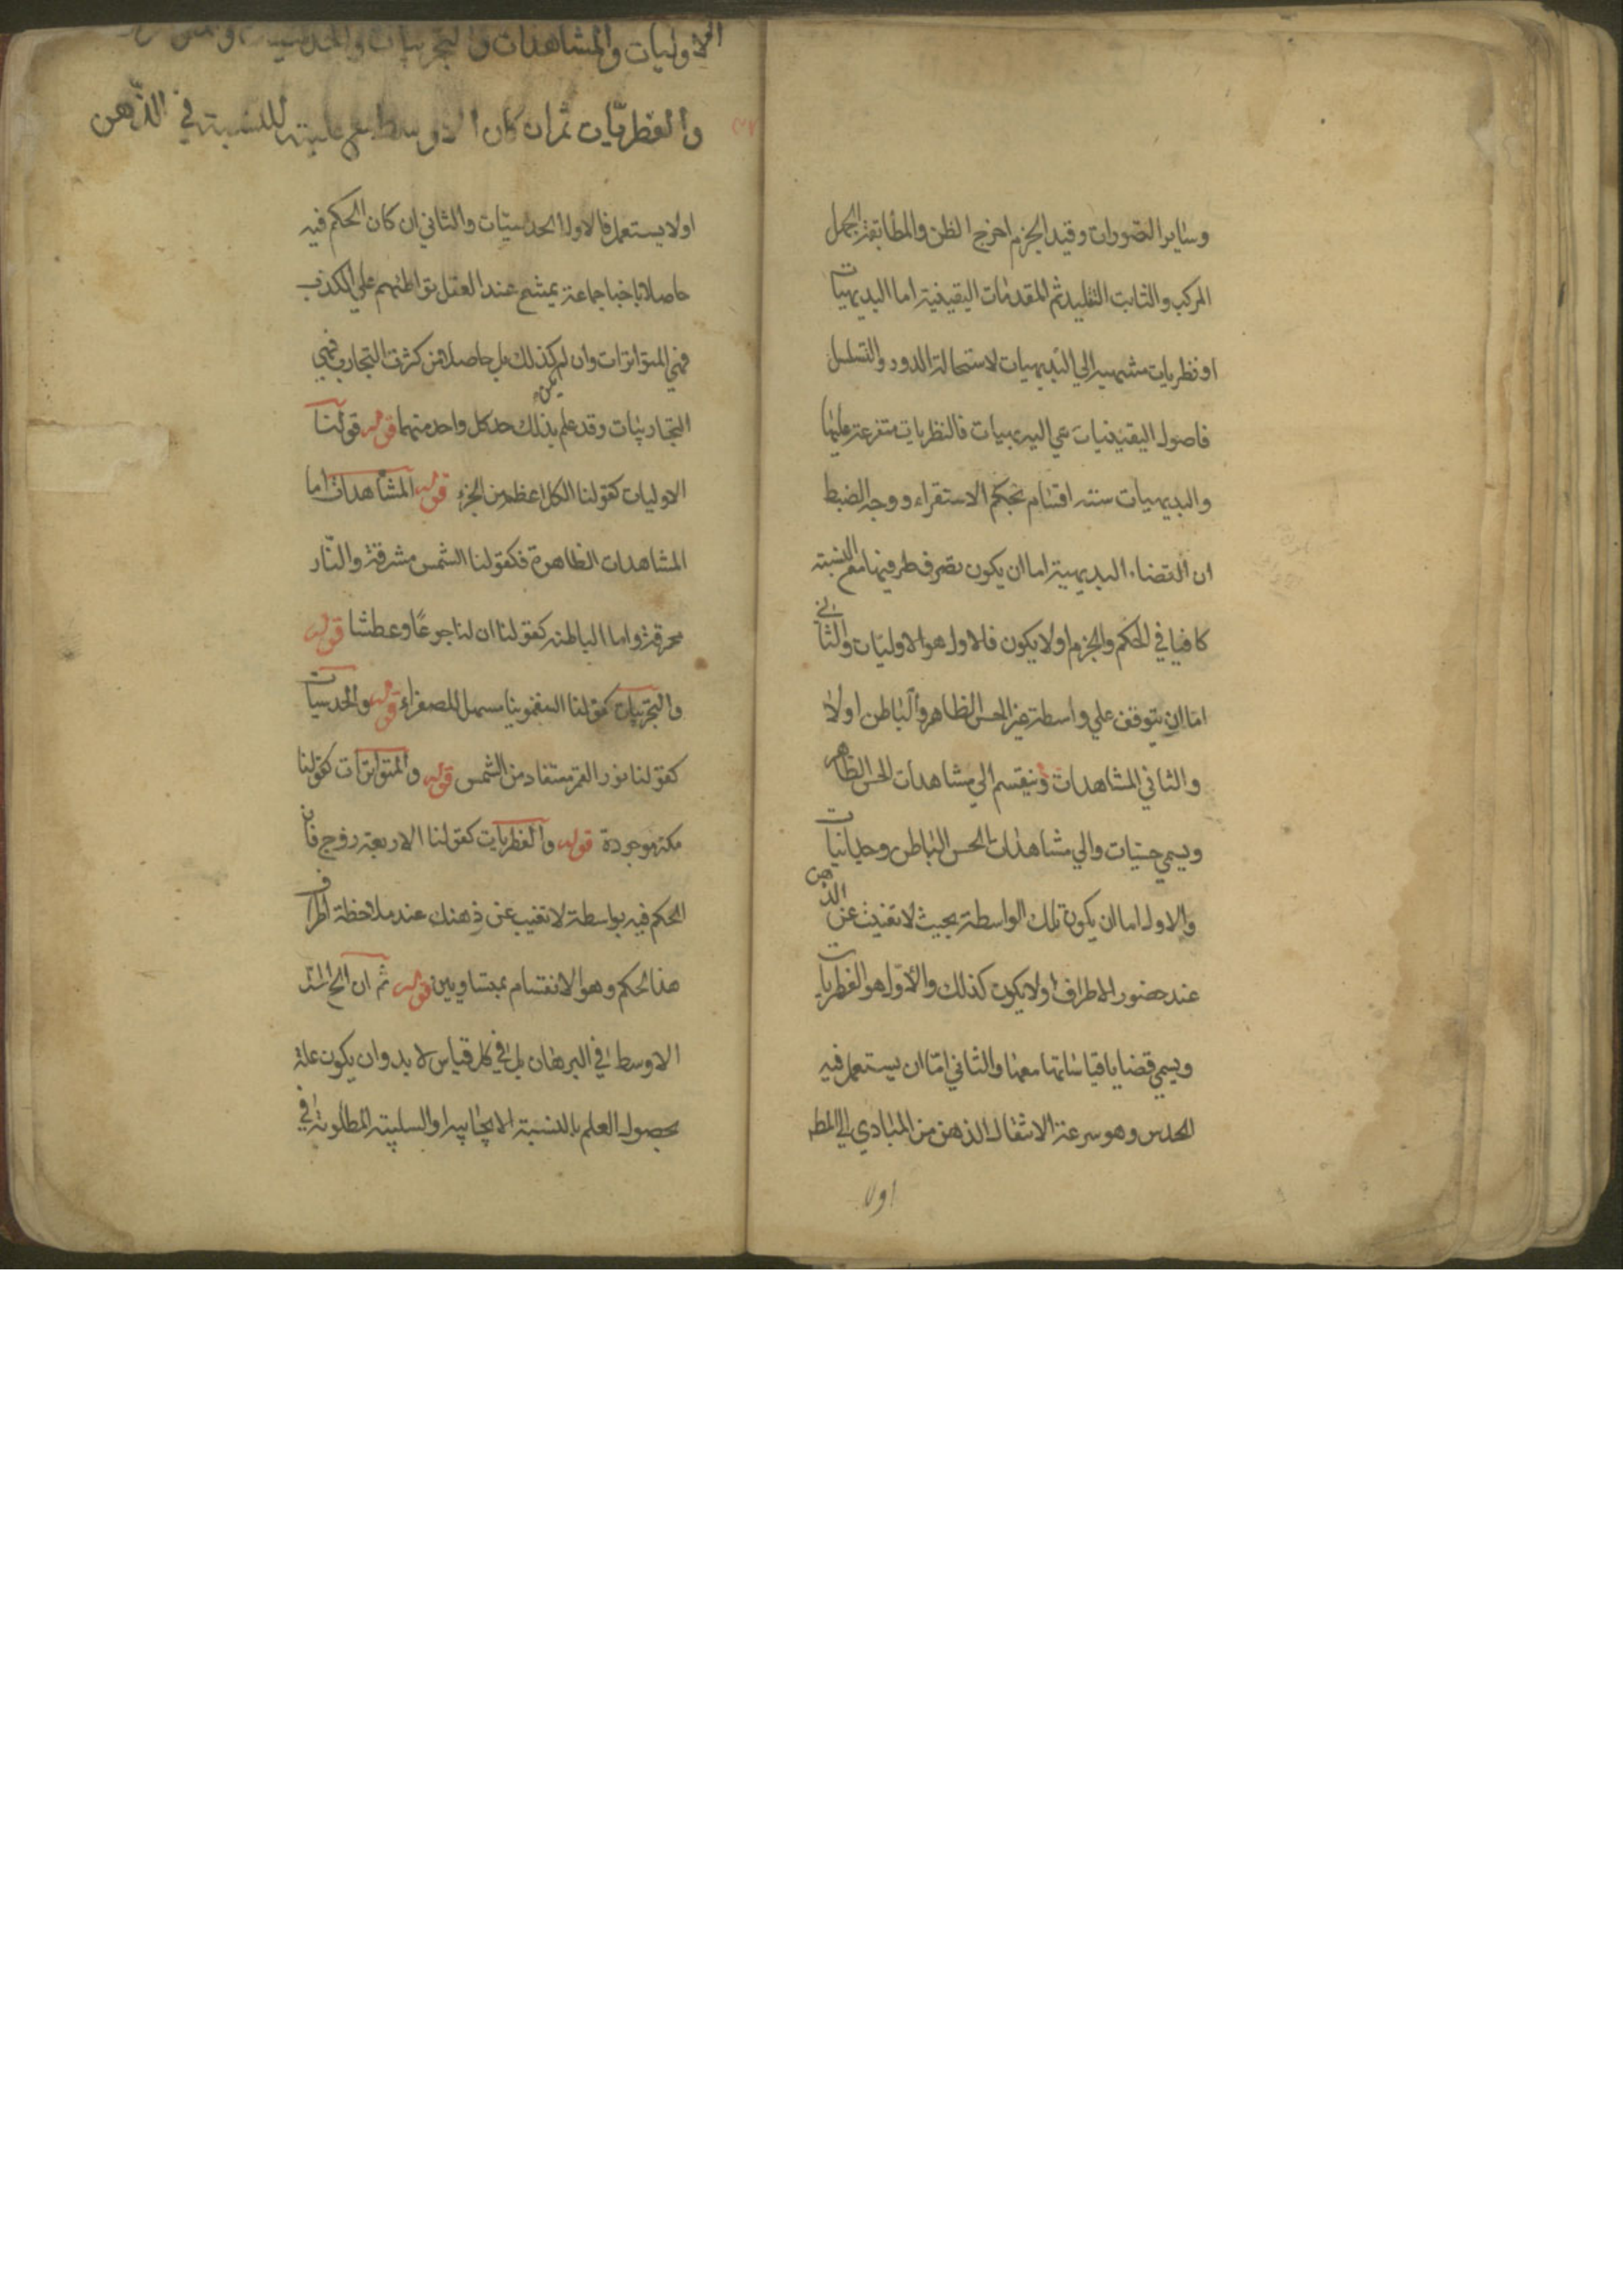 وساير التصورات وقيد الجزم اخرج الظن والمطابقة الجهل
المركب والثابت التقليد ثم المقدمات اليقينية اما البديهيات
او نظريات منتهية الي البديهيات لاستحالة الدور والتسلسل
فاصول اليقينيات هي البديهيات فالنظريات متفرعة عليها
والبديهيات ستة اقسام بحكم الاستقراء ووجه الضبط
ان القضاء البديهية اما ان يكون تصرف طرفيها مع النسبة
كافيا في الحكم والجزم او لا يكون فلاول هو الاوليات والثاني
اما ان يتوقف علي واسطة غير الحس الظاهر والباطن او لا
والثاني المشاهدات وينقسم الي مشاهدات الحس الظاهر
ويسمي حسيات والي مشاهدات الحس الباطن وحدانيات
والاول اما ان يكون تلك الواسطة بحيث لا تغيب عن الذهن
عند حضور الاطراف او لا يكون كذلك والاول هو الفطريات
ويسمي قضايا قياساتها معها والثاني اما ان يستعمل فيه
الحدس وهو سرعة الانتقال الذهن من المبادي الي المط
او لا
الاوليات والمشاهدات والتجربيات والحدسيات
والفطريات ثم ان كان الاوسط مع علية للنسبة في الذهن
او لا يستعمل فالاول الحدسيات والثاني ان كان الحكم فيه
حاصلا باخبا جماعة يمتنع عند العقل تواطئهم علي الكذب
فهي المتواترات وان لم يكن كذلك بل حاصل من كثرت التجارب فهي
التجاربيات وقد علم بذلك حد كل واحد منهما قوله قولنا
الاوليات كقولنا الكل اعظم من الجزء قوله المشاهدات اما
المشاهدات الظاهرة فكقولنا الشمس مشرقة والنار
محرقة واما الباطنه كقولنا ان لنا جوعا وعطشا قوله
والتجربيات كقولنا السقمونيا مسهل للصفراء قوله والحدسيات
كقولنا نور القمر مستفاد من الشمس قوله والمتواترات كقولنا
مكة موجودة قوله والفطريات كقولنا الاربعة زوج فان
الحكم فيه بواسطة لا تغيب عن ذهنك عند ملاحظة اطراف
هذا الحكم وهو الانقسام بمتساويين قوله ثم ان الخ الحد
الاوسط في البرهان بل في كل قياس لا بد وان يكون علة
بحصول العلم بالنسبة الايجابية او السلبية المطلوبة في